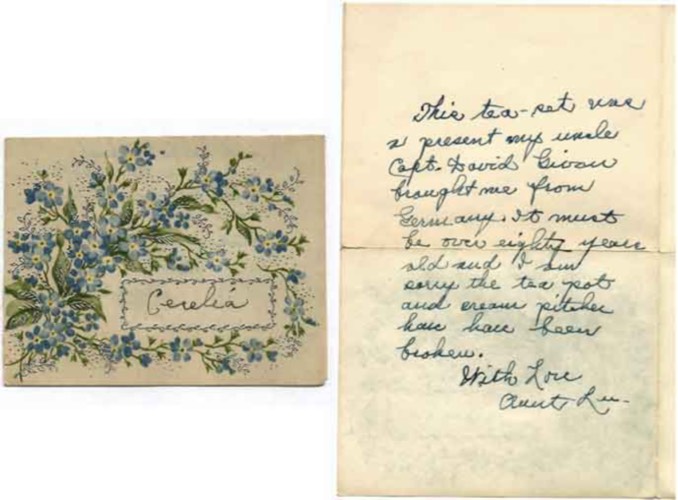 Cecelia
This tea-set was
a present my uncle
Capt. David Givan
brought me from
Germany. It must
be over eighty years
old and I am
sorry the tea pot
and cream pitcher
have have been
broken.
With Love
Aunt Lu-